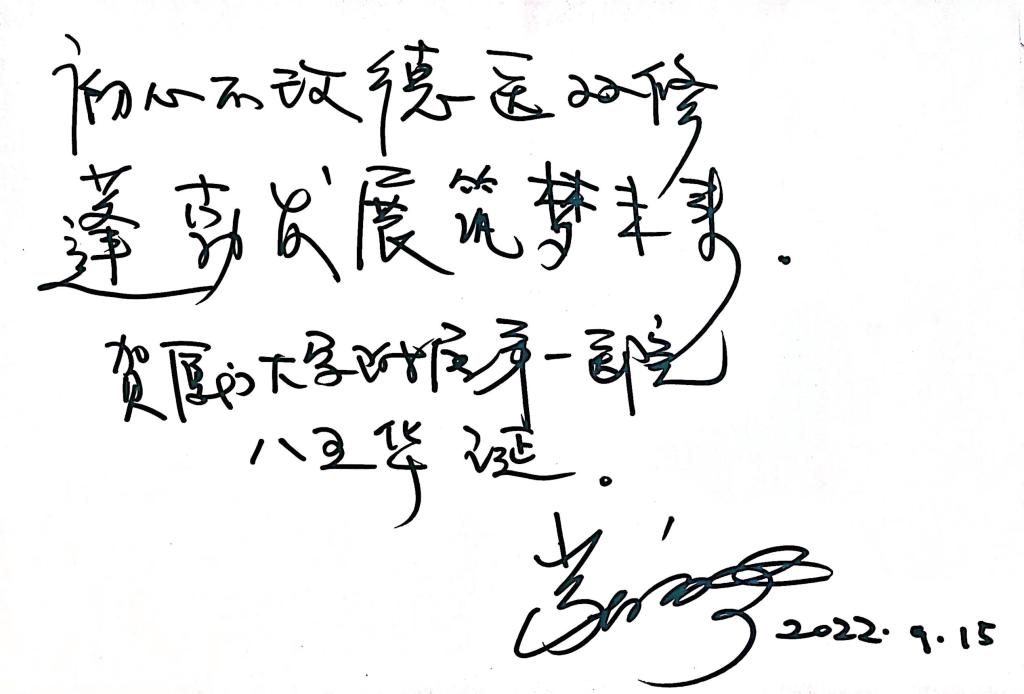 初心不改德医双修
蓬勃发展筑梦未来.
贺厦门大学附属第一医院
八五华诞.
2022.9.15